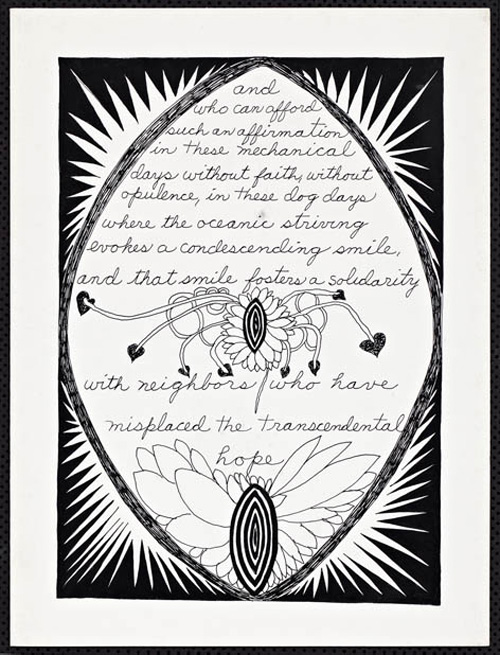 and
who can afford
such an affirmation
in these mechanical
days without faith, without
opulence, in these dog days
where the oceanic striving
evokes a condescending smile,
and that smile fosters a solidarity
with neighbors who have
misplaced the transcendental
hope